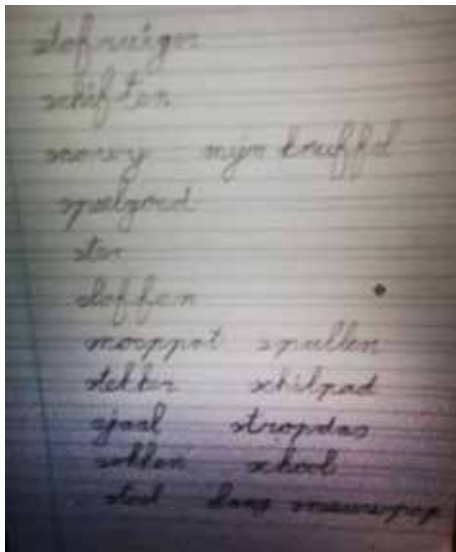 stofzuiger
schriften
snowy mijn knuffel
speelgoed
ster
sloffen
snoeppot spullen
stekker schilpad
sjaal stropdas
sokken school
stoel sneeuwpop